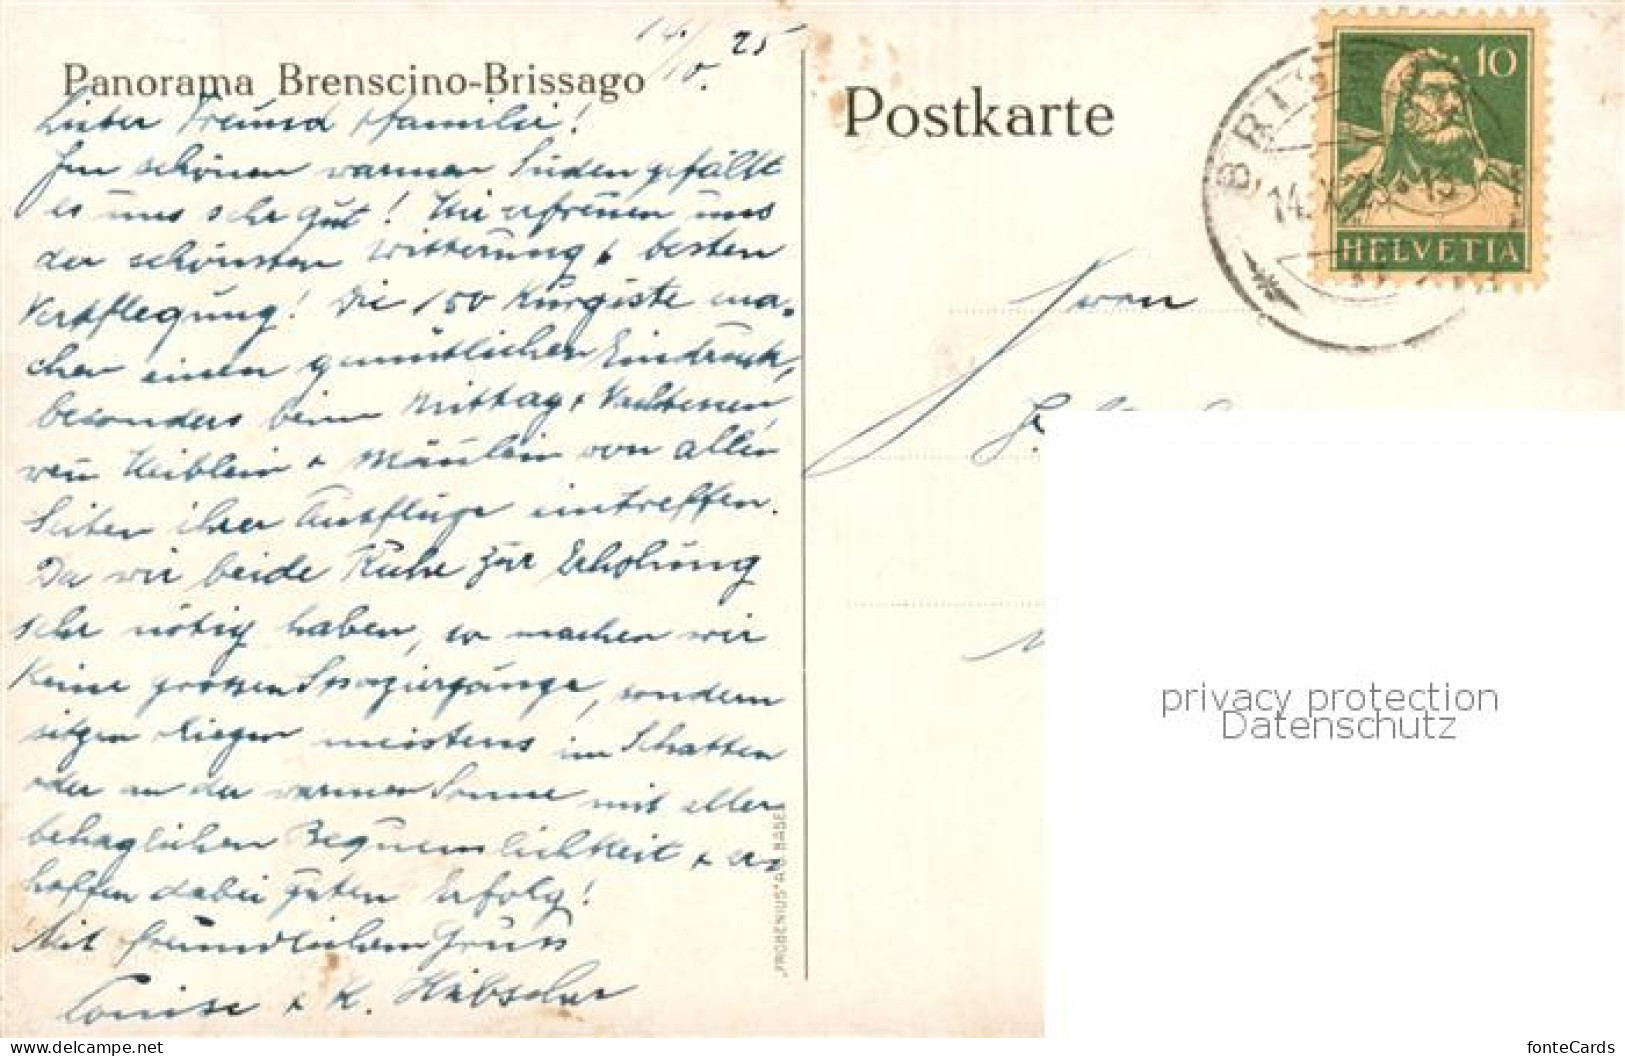 14/10. 25
Panorama Brenscino-Brissago
Lieber Freund & Familie!
Im schönen warmen Süden gefällt
es uns sehr gut! Wir erfreuen uns
der schönsten Witterung & besten
Verpflegung! Die 150 Kurgäste ma-
chen einen gemütlichen Eindruck,
besonders beim Mittag & Nachtessen,
wenn Weiblein & Mänlein von allen
Seiten ihrer Ausflüge eintreffen.
Da wir beide Ruhe zur Erholung
sehr nötig haben, so machen wir
keine grossen Spaziergänge, sondern
sitzen & liegen meistens im Schatten
oder an der warmen Sonne mit aller
behaglichen Bequemlichkeit & er-
hoffen dabei guten Erfolg!
Mit freundlichem Gruss
Louise & K. Hübscher
"FROBENIUS" A.G. BASEL
Postkarte
10
HELVETIA
BRISSAGO
14.X.25
Herrn
privacy protection
Datenschutz
www.delcampe.net
fonteCards